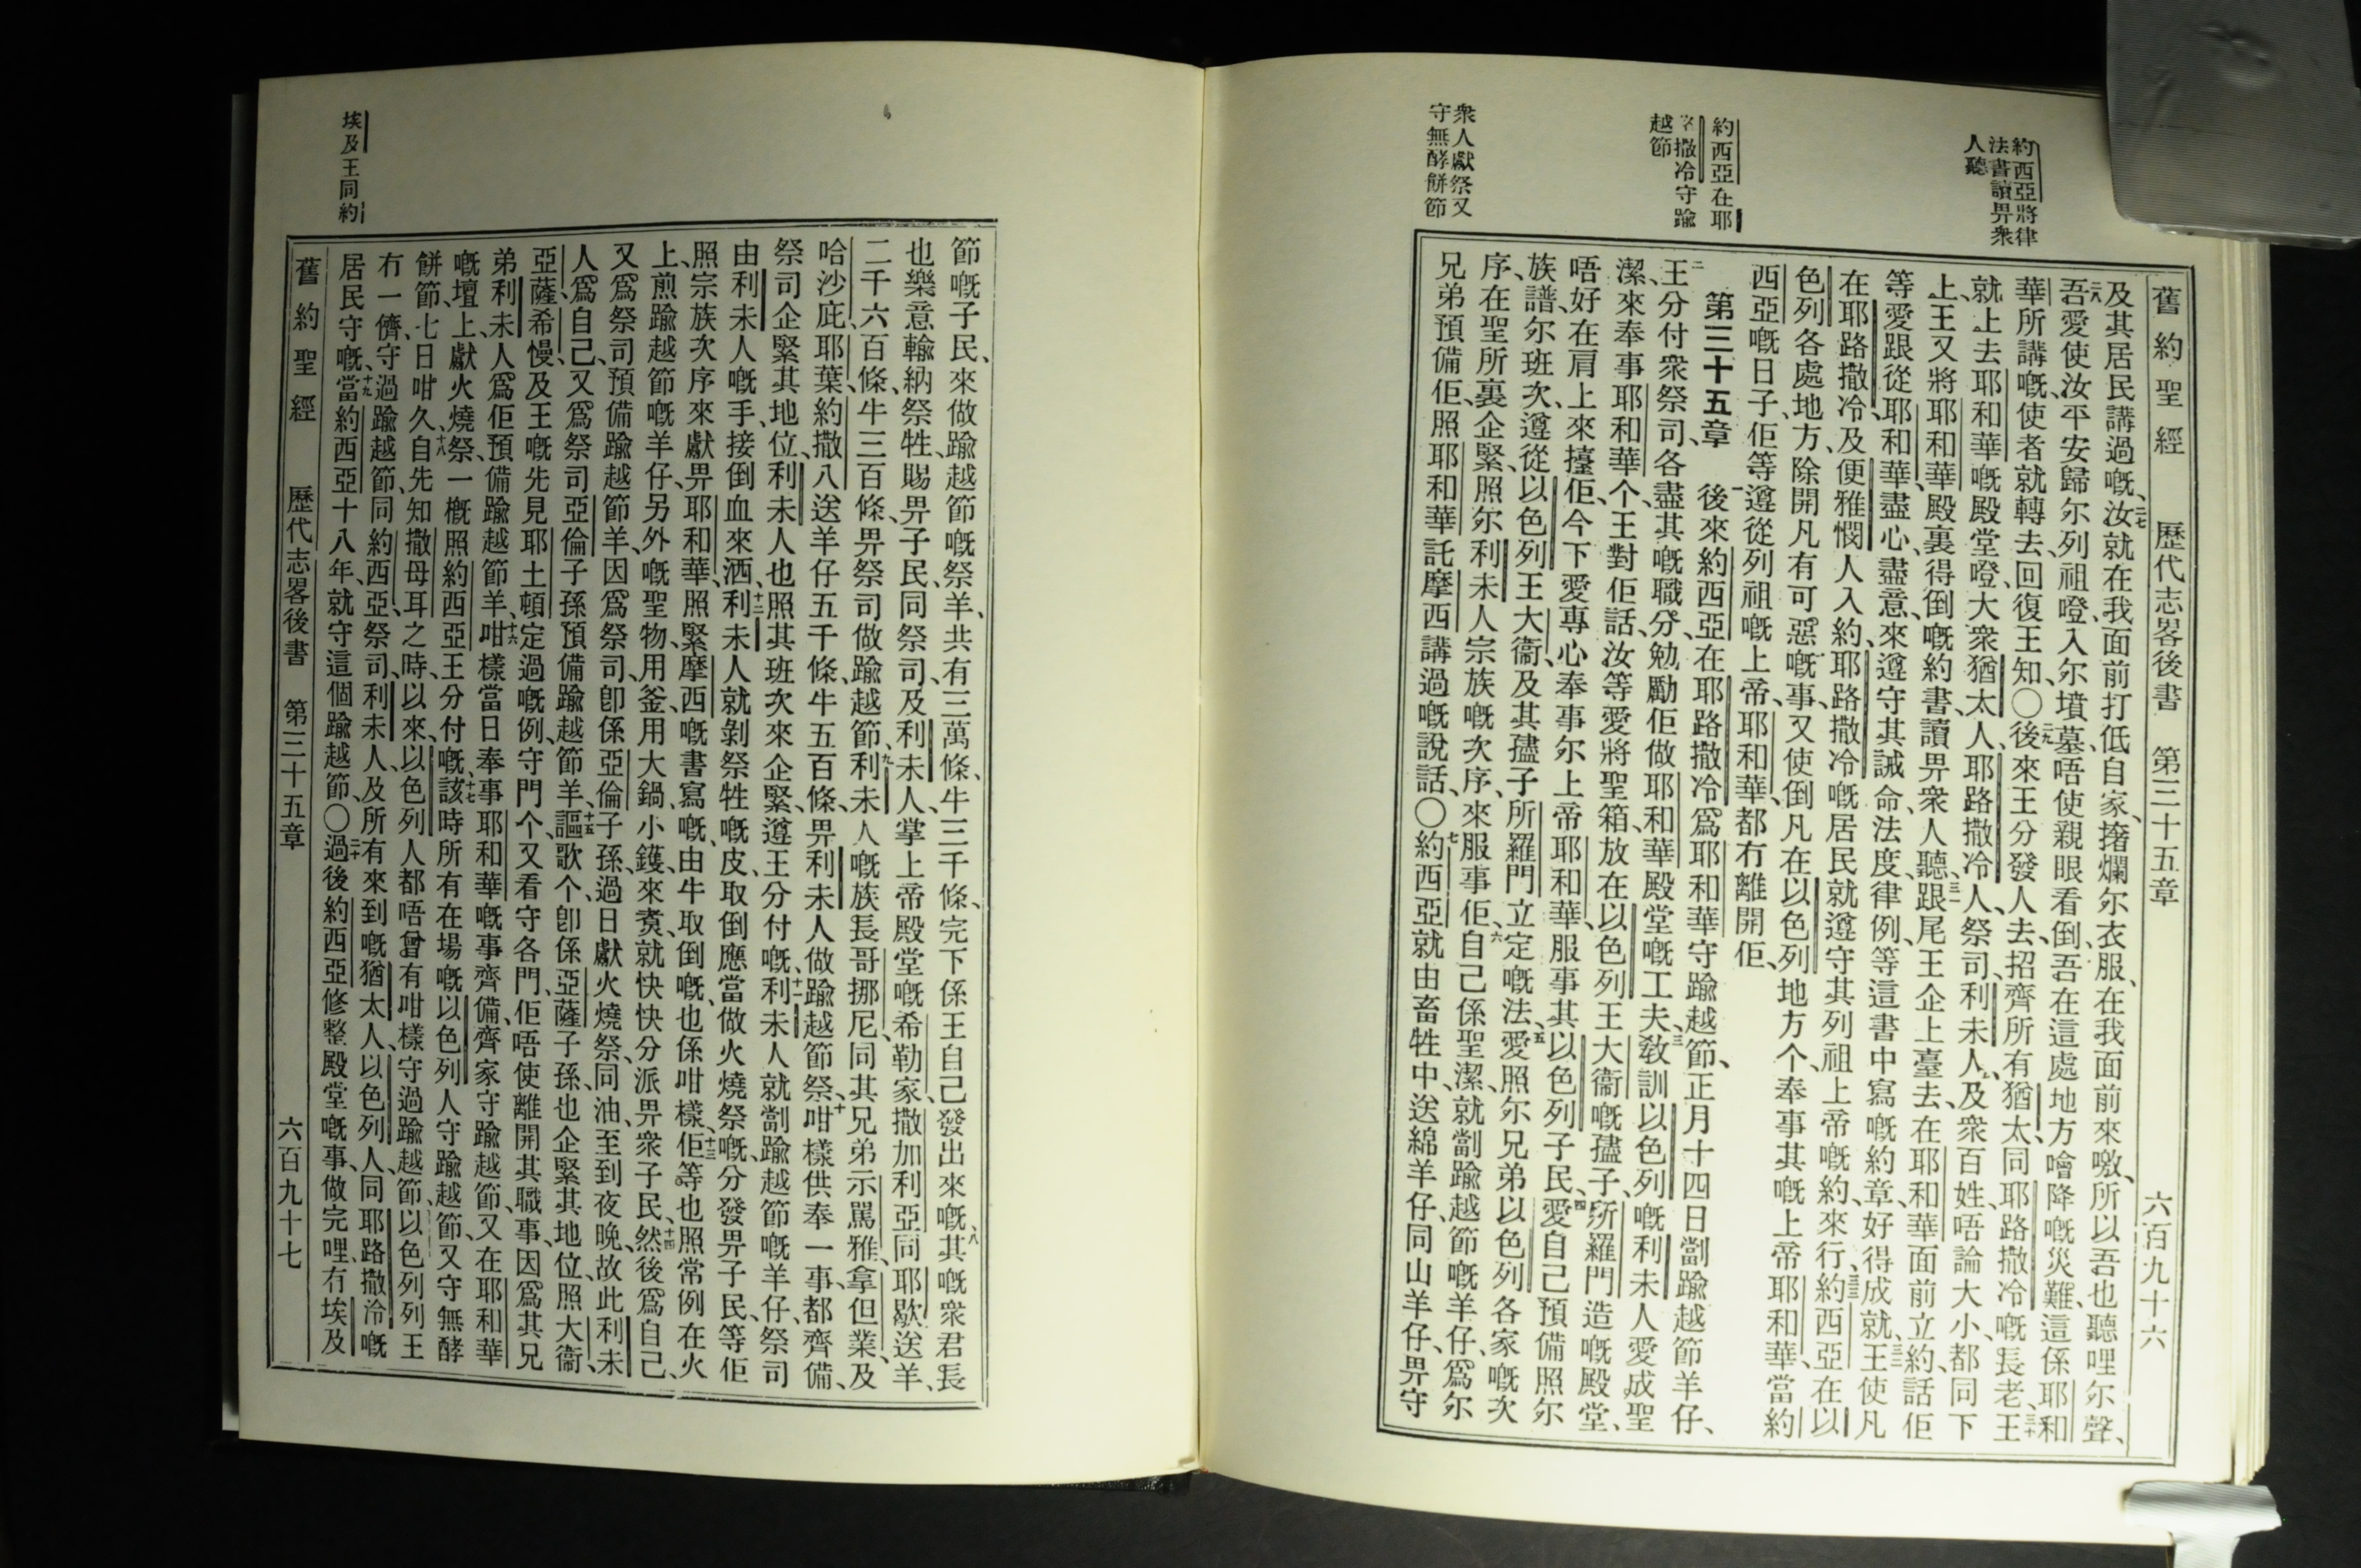 約西亞將律
法書讀畀衆
人聽
約西亞在耶
撒冷守踰
越節
衆人獻祭又
守無酵餅節
舊約聖經 歷代志畧後書 第三十五章 六百九十六
及其居民講過嘅、二七汝就在我面前打低自家、撦爛尔衣服、在我面前來噭、所以吾也聽哩尔聲、
二八吾愛使汝平安歸尔列祖噔、入尔墳墓、唔使親眼看倒、吾在這處地方噲降嘅災難、這係耶和
華所講嘅、使者就轉去、回復王知、〇二九後來王分發人去、招齊所有猶太、同耶路撒冷嘅長老、三十王
就上去耶和華嘅殿堂噔、大衆猶太人、耶路撒冷人、祭司、利未人、及衆百姓、唔論大小、都同下
上、王又將耶和華殿裏得倒嘅約書、讀畀衆人聽、三一跟尾王企上臺去、在耶和華面前立約、話佢
等愛跟從耶和華、盡心、盡意、來遵守其誡命、法度、律例、等這書中寫嘅約章、好得成就、三二王使凡
在耶路撒冷、及便雅憫人入約、耶路撒冷嘅居民就遵守其列祖上帝嘅約、來行、三三約西亞在以
色列各處地方、除開凡有可惡嘅事、又使倒凡在以色列地方个、奉事其嘅上帝耶和華、當約
西亞嘅日子、佢等遵從列祖嘅上帝、耶和華、都冇離開佢、
第三十五章 一後來約西亞在耶路撒冷、爲耶和華守踰越節、正月十四日劏踰越節羊仔、
二王分付衆祭司、各盡其嘅職分、勉勵佢做耶和華殿堂嘅工夫、三敎訓以色列嘅利未人愛成聖
潔、來奉事耶和華个、王對佢話、汝等愛將聖箱、放在以色列王大衞嘅孻子、所羅門造嘅殿堂、
唔好在肩上來擡佢、今下愛專心奉事尔上帝耶和華、服事其以色列子民、四愛自己預備照尔
族譜、尔班次、遵從以色列王大衞、及其孻子所羅門立定嘅法、五愛照尔兄弟以色列各家嘅次
序、在聖所裏企緊、照尔利未人宗族嘅次序、來服事佢、六自己係聖潔、就劏踰越節嘅羊仔、爲尔
兄弟預備佢、照耶和華託摩西講過嘅說話、〇七約西亞就由畜牲中、送綿羊仔、同山羊仔、畀守
埃及王同約
節嘅子民、來做踰越節嘅祭羊、共有三萬條、牛三千條、完下係王自己發出來嘅、八其嘅衆君長
也樂意輸納祭牲、賜畀子民、同祭司、及利未人、掌上帝殿堂嘅希勒家、撒加利亞、同耶歇、送羊、
二千六百條、牛三百條、畀祭司做踰越節、九利未人嘅族長哥挪尼、同其兄弟示罵雅、拿但業、及
哈沙庇、耶葉、約撒八、送羊仔五千條、牛五百條、畀利未人做踰越節祭、十咁樣供奉一事、都齊備、
祭司企緊其地位、利未人也照其班次來企緊、遵王分付嘅、十一利未人就劏踰越節嘅羊仔、祭司
由利未人嘅手、接倒血來洒、十二利未人就剝祭牲嘅皮、取倒應當做火燒祭嘅、分發畀子民、等佢
照宗族次序、來獻畀耶和華、照緊摩西嘅書寫嘅、由牛取倒嘅、也係咁樣、十三佢等也照常例在火
上、煎踰越節嘅羊仔、另外嘅聖物、用釜、用大鍋、小鑊、來煑、就快快分派畀衆子民、十四然後爲自己、
又爲祭司、預備踰越節羊、因爲祭司、卽係亞倫子孫、過日獻火燒祭、同油、至到夜晚、故此利未
人爲自己、又爲祭司亞倫子孫、預備踰越節羊、十五謳歌个、卽係亞薩子孫、也企緊其地位、照大衞、
亞薩、希幔、及王嘅先見耶土頓、定過嘅例、守門个、又看守各門、佢唔使離開其職事、因爲其兄
弟利未人爲佢預備踰越節羊、十六咁樣當日奉事耶和華嘅事、齊備、齊家守踰越節、又在耶和華
嘅壇上、獻火燒祭、一槪照約西亞王分付嘅、十七該時所有在場嘅以色列人守踰越節、又守無酵
餅節、七日咁久、十八自先知撒母耳之時、以來、以色列人都唔曾有咁樣守過踰越節、以色列列王
冇一儕、守過踰越節、同約西亞、祭司、利未人、及所有來到嘅猶太人、以色列人、同耶路撒冷嘅
居民守嘅、十九當約西亞十八年、就守這個踰越節、〇二十過後約西亞修整殿堂嘅事、做完哩、有埃及
舊約聖經 歷代志畧後書 第三十五章 六百九十七